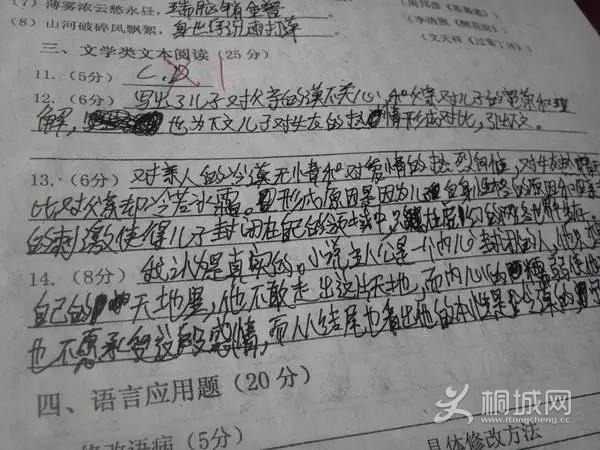 (7) 薄雾浓云愁永昼，瑞脑销金兽
(8) 山河破碎风飘絮，身世浮沉雨打萍
(李清照《醉花阴》)
(文天祥《过零丁洋》)
三、文学类文本阅读（25分）
11.（5分） C.D
12.（6分） 写出了儿子对父亲的漠不关心，和父亲对儿子的宽容和理
解，也为下文儿子对女友的热情形成对比，引出下文。
13.（6分） 对亲人的冷漠无情和对爱情的热烈向往，对女友
比对父亲却冷若冰霜。形成原因是因为儿子自身性格的原因和
的刺激使得儿子封闭在自己的领域中，
14.（8分） 我认为是真实的。小说主人公是一个内心封闭的人，他
自己的天地里，他不敢走出这片天地，而内心的
也不愿承受这段感情，而从结尾也看出他的本性是
四、语言应用题（20分）
修改语病（5分）
具体修改方法
桐城网
www.itongcheng.cc